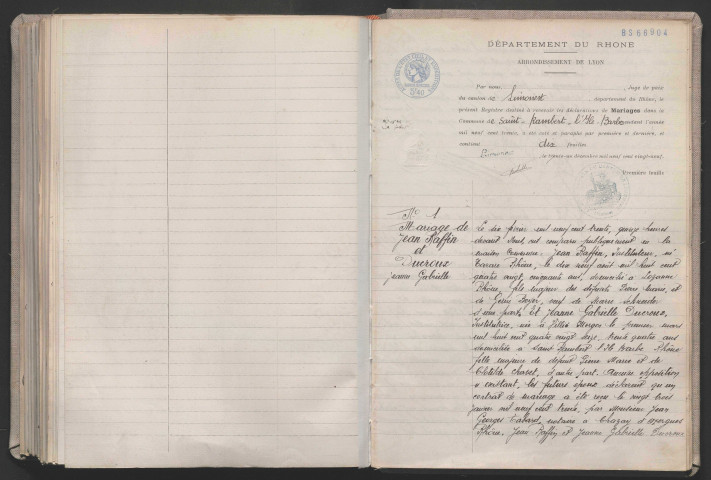 BS66904
DÉPARTEMENT DU RHONE
ARRONDISSEMENT DE LYON
Par nous, Juge de paix
du canton de Limonest département du Rhône, le
présent Registre destiné à recevoir les déclarations de Mariages dans la
Commune de Saint-Rambert l'Ile Barbe pendant l'année
mil neuf cent trente, a été coté et paraphé par première et dernière, et
contient dix feuilles
Limonest, le trente un décembre mil neuf cent vingt neuf.
Première feuille
N° 1
Mariage de
Jean Baffin
et
Ducroux
Jeanne Gabrielle
Le six février mil neuf cent trente, quinze heures
devant Nous ont comparu publiquement en la
maison commune: Jean Baffin, Instituteur, né
Rhône, le dix neuf août mil huit cent
quatre vingt, cinquante ans, domicilié à
Rhône, fils majeur des défunts Marie, et
de Boyer, veuf de Marie
d'une part, Et Jeanne Gabrielle Ducroux,
Institutrice, née à Villié Morgon le premier mars
mil huit cent quatre vingt seize, trente quatre ans
domiciliée à Saint Rambert l'Ile Barbe Rhône
fille majeure de défunt Pierre Marie et de
Clotilde d'autre part. Aucune opposition
n'existant, les futurs époux déclarent qu'un
contrat de mariage a été reçu le vingt trois
janvier mil neuf cent trente, par Monsieur Jean
Georges notaire à
Rhône. Jean Baffin et Jeanne Gabrielle Ducroux